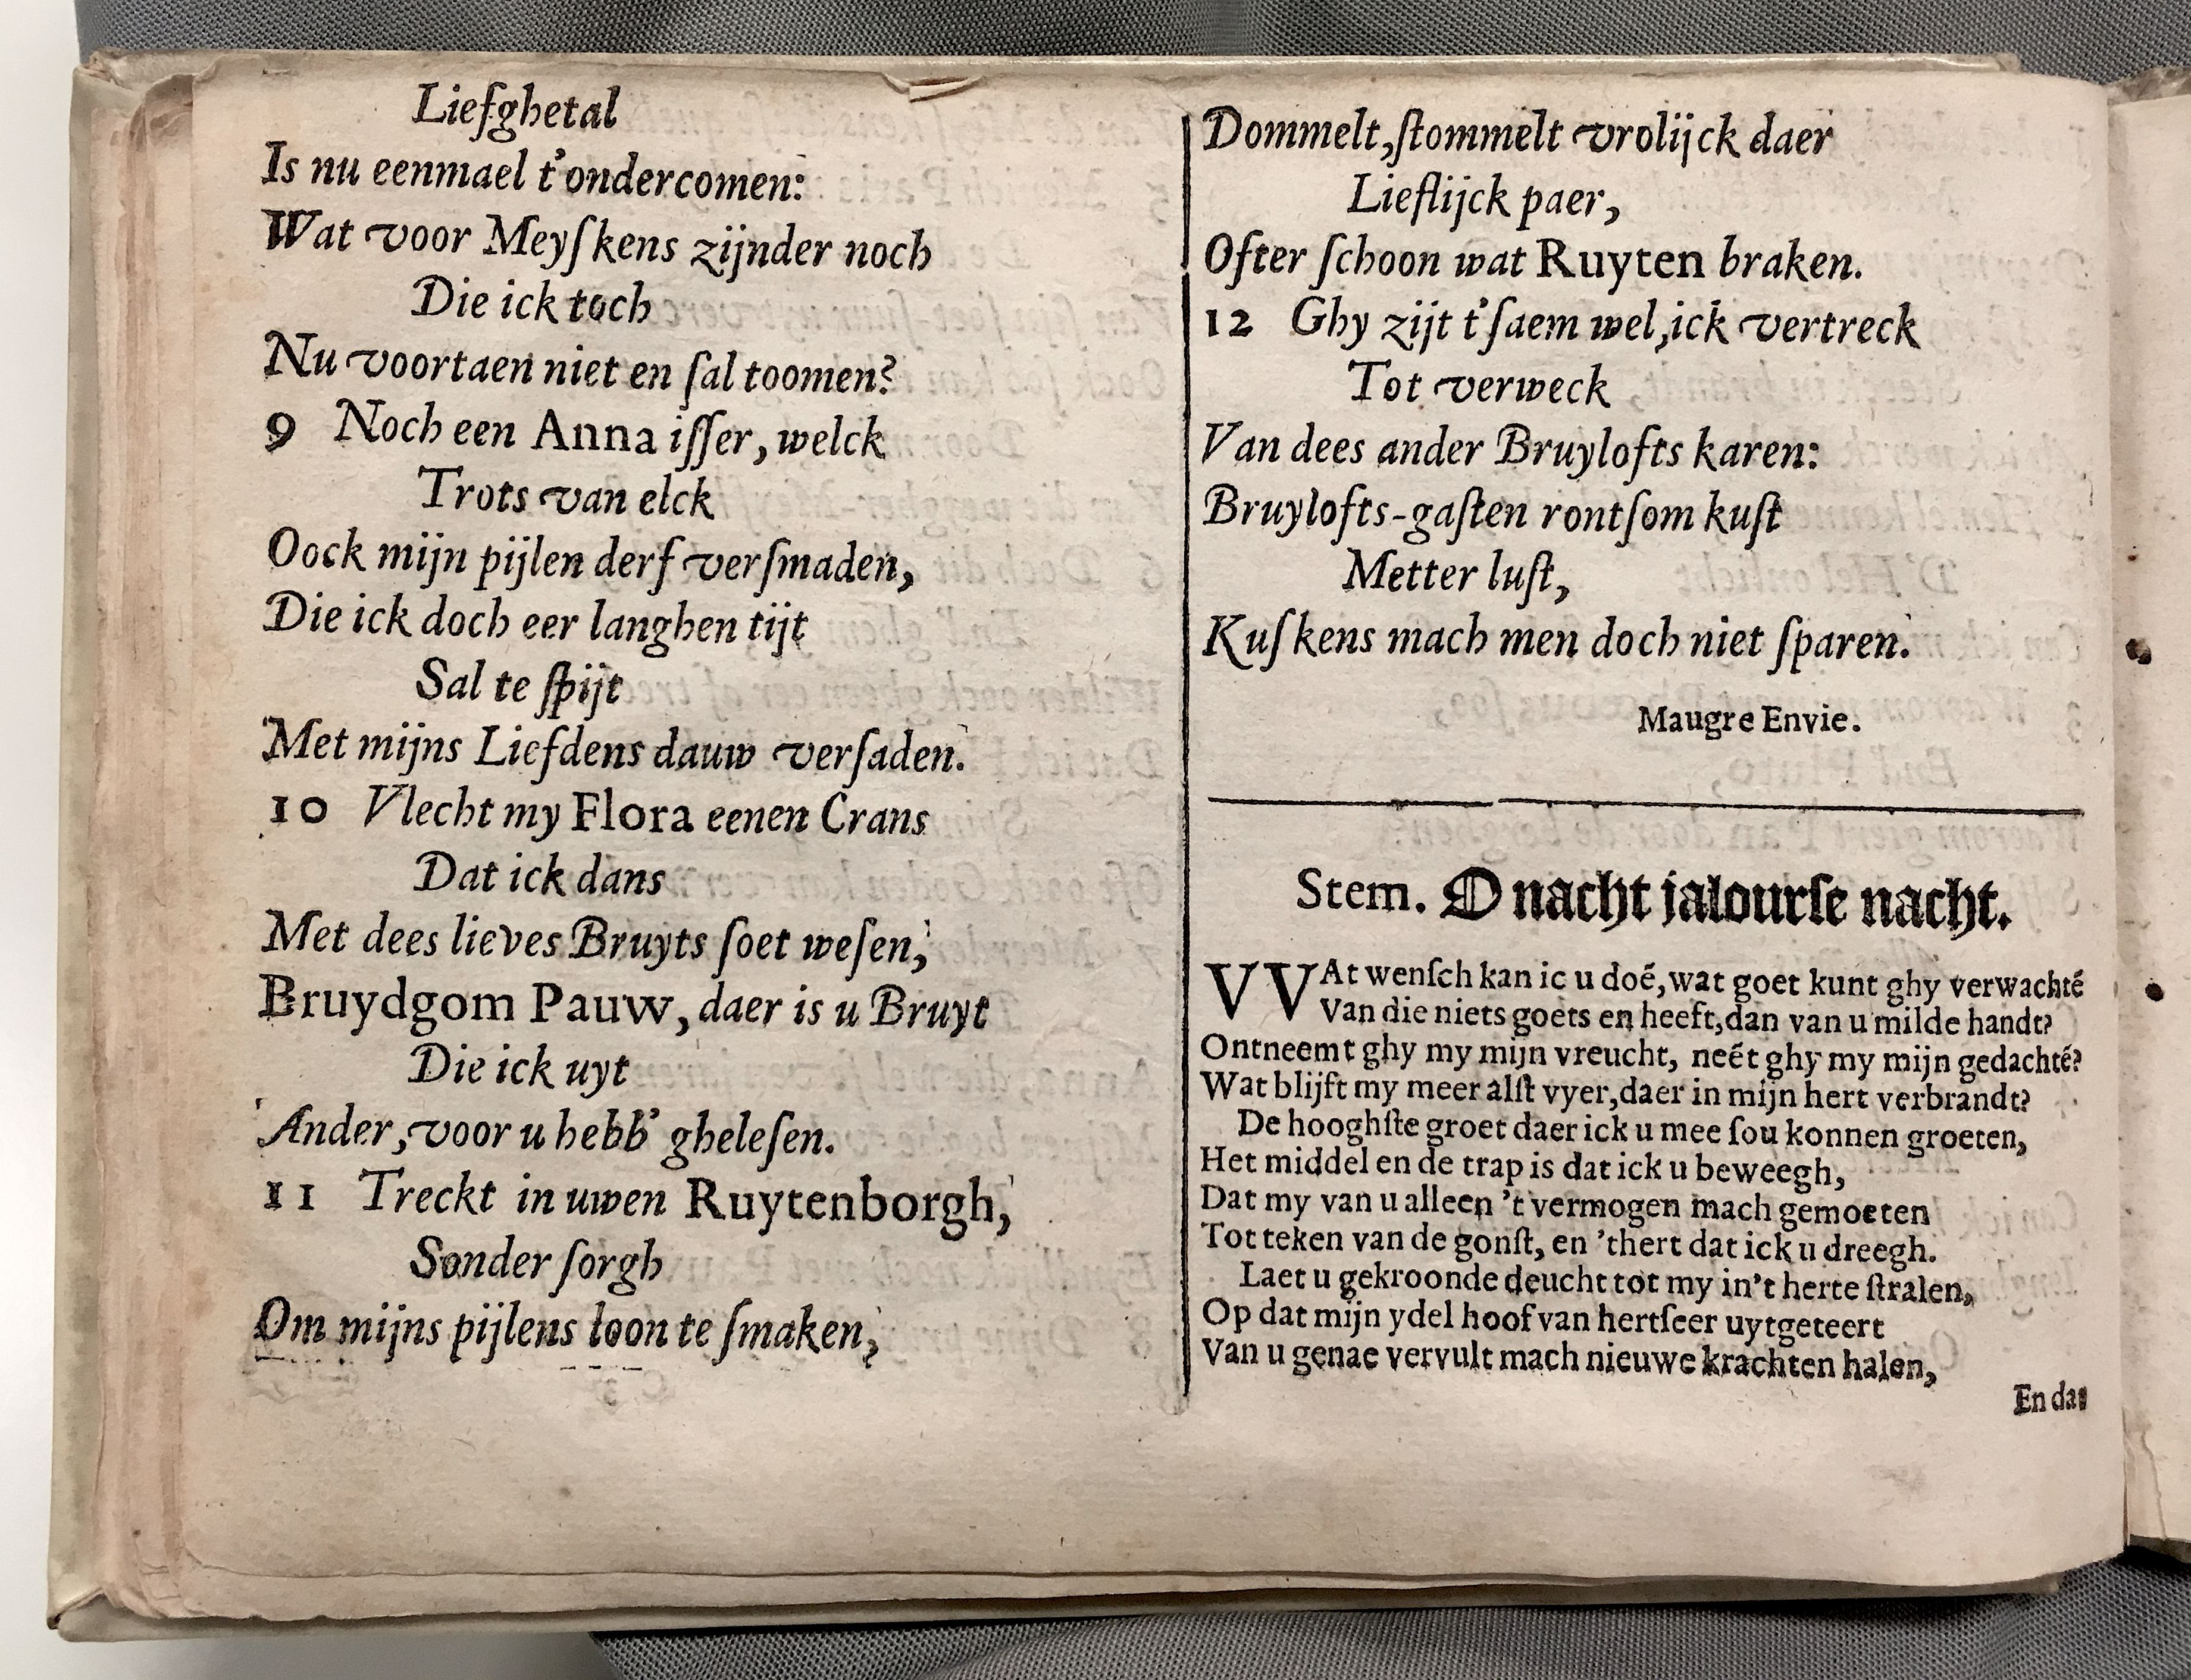 Liefghetal
Is nu eenmael t'ondercomen:
Wat voor Meyſkens zijnder noch
Die ick toch
Nu voortaen niet en ſal toomen?
9 Noch een Anna iſſer, welck
Trots van elck
Oock mijn pijlen derf verſmaden,
Die ick doch eer langhen tijt
Sal te ſpijt
Met mijns Liefdens dauw verſaden.
10 Vlecht my Flora eenen Crans
Dat ick dans
Met dees lieves Bruyts ſoet weſen,
Bruydgom Pauw, daer is u Bruyt
Die ick uyt
Ander, voor u hebb' gheleſen.
11 Treckt in uwen Ruytenborgh,
Sonder ſorgh
Om mijns pijlens loon te ſmaken,
Dommelt, ſtommelt vrolijck daer
Lieflijck paer,
Ofter ſchoon wat Ruyten braken.
12 Ghy zijt t'ſaem wel, ick vertreck
Tot verweck
Van dees ander Bruylofts karen:
Bruylofts-gaſten rontſom kuſt
Metter luſt,
Kuſkens mach men doch niet ſparen.
Maugre Envie.
Stem. O nacht jalourſe nacht.
VVAt wenſch kan ic u doé, wat goet kunt ghy verwachté
Van die niets goets en heeft, dan van u milde handt?
Ontneemt ghy my mijn vreucht, neét ghy my mijn gedachté?
Wat blijft my meer alſt vyer, daer in mijn hert verbrandt?
De hooghſte groet daer ick u mee ſou konnen groeten,
Het middel en de trap is dat ick u beweegh,
Dat my van u alleen 't vermogen mach gemoeten
Tot teken van de gonſt, en 'thert dat ick u dreegh.
Laet u gekroonde deucht tot my in't herte ſtralen,
Op dat mijn ydel hoof van hertſeer uytgeteert
Van u genae vervult mach nieuwe krachten halen,
En dat